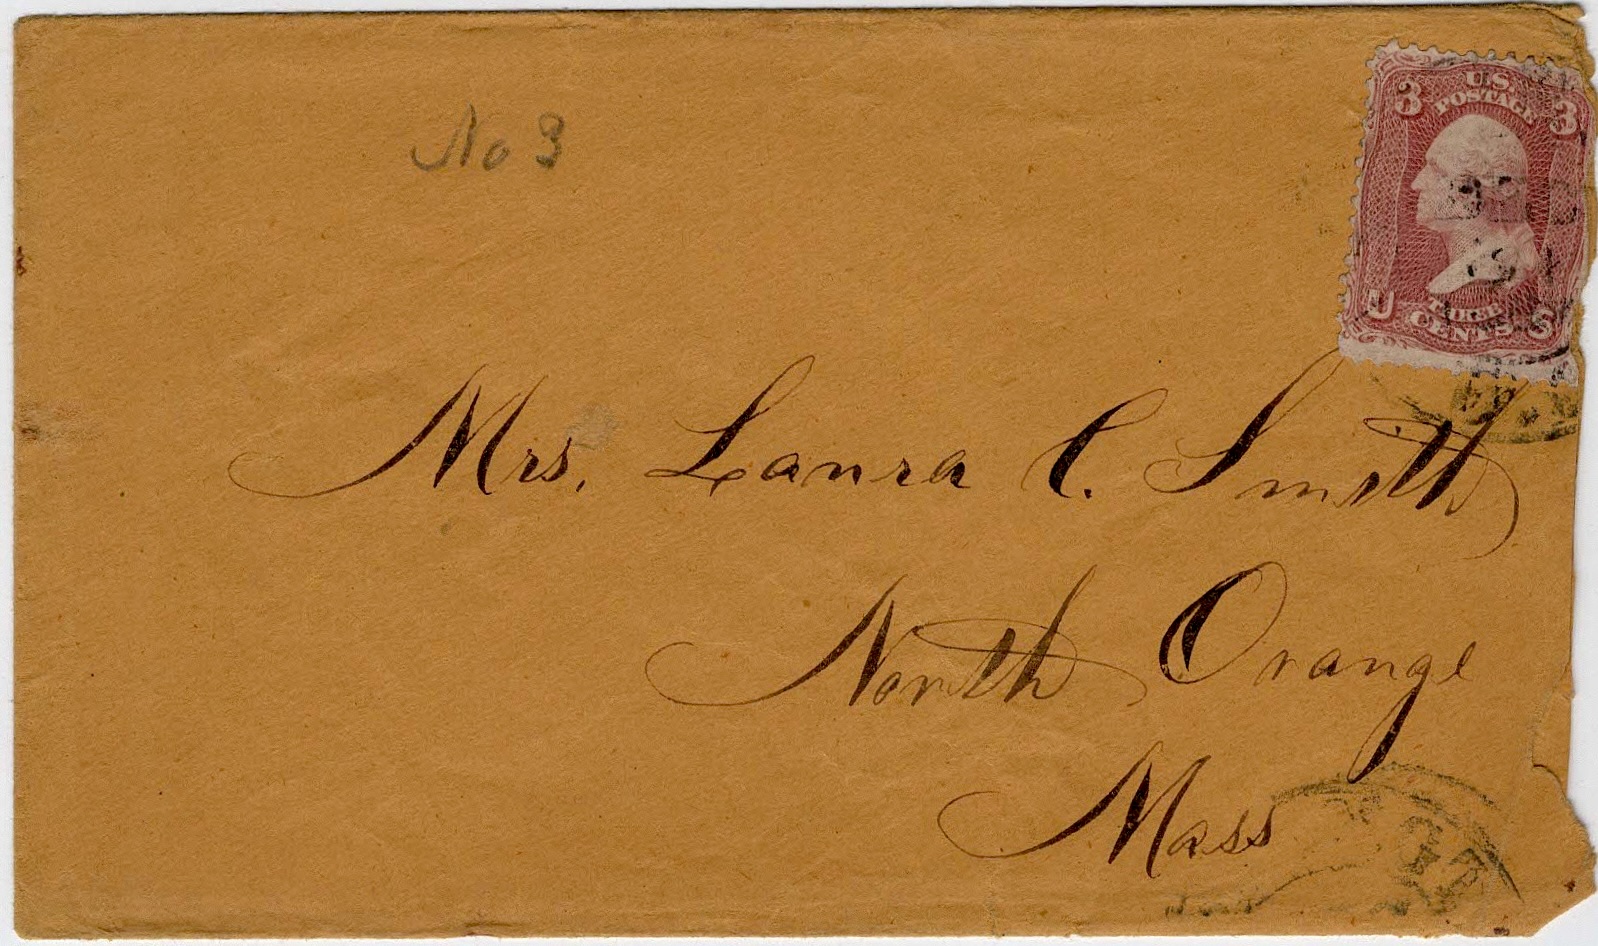 No 3
3 U.S. 3
POSTAGE
THREE
U CENTS S
Mrs. Laura C. Smith
North Orange
Mass